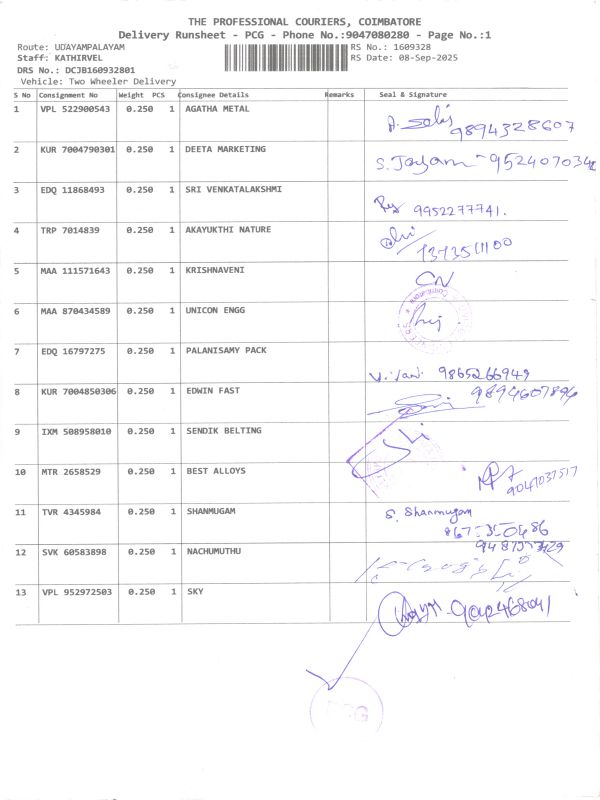 THE PROFESSIONAL COURIERS, COIMBATORE
Delivery Runsheet - PCG - Phone No.:9047080280 - Page No.:1
Route: UDAYAMPALAYAM RS No.: 1609328
Staff: KATHIRVEL RS Date: 08-Sep-2025
DRS No.: DCJB160932801
Vehicle: Two Wheeler Delivery
S No Consignment No Weight PCS Consignee Details Remarks Seal & Signature
1 VPL 522900543 0.250 1 AGATHA METAL
9894328607
2 KUR 7004790301 0.250 1 DEETA MARKETING
S. Jayam - 952407034
3 EDQ 11868493 0.250 1 SRI VENKATALAKSHMI
9952277741.
4 TRP 7014839 0.250 1 AKAYUKTHI NATURE
5 MAA 111571643 0.250 1 KRISHNAVENI
CN
6 MAA 870434589 0.250 1 UNICON ENGG
7 EDQ 16797275 0.250 1 PALANISAMY PACK
9865266949
8 KUR 7004850306 0.250 1 EDWIN FAST
9894607896
9 IXM 508958010 0.250 1 SENDIK BELTING
10 MTR 2658529 0.250 1 BEST ALLOYS
9047037517
11 TVR 4345984 0.250 1 SHANMUGAM
S. Shanmugam
12 SVK 60583898 0.250 1 NACHUMUTHU
13 VPL 952972503 0.250 1 SKY
9042468041
PCG